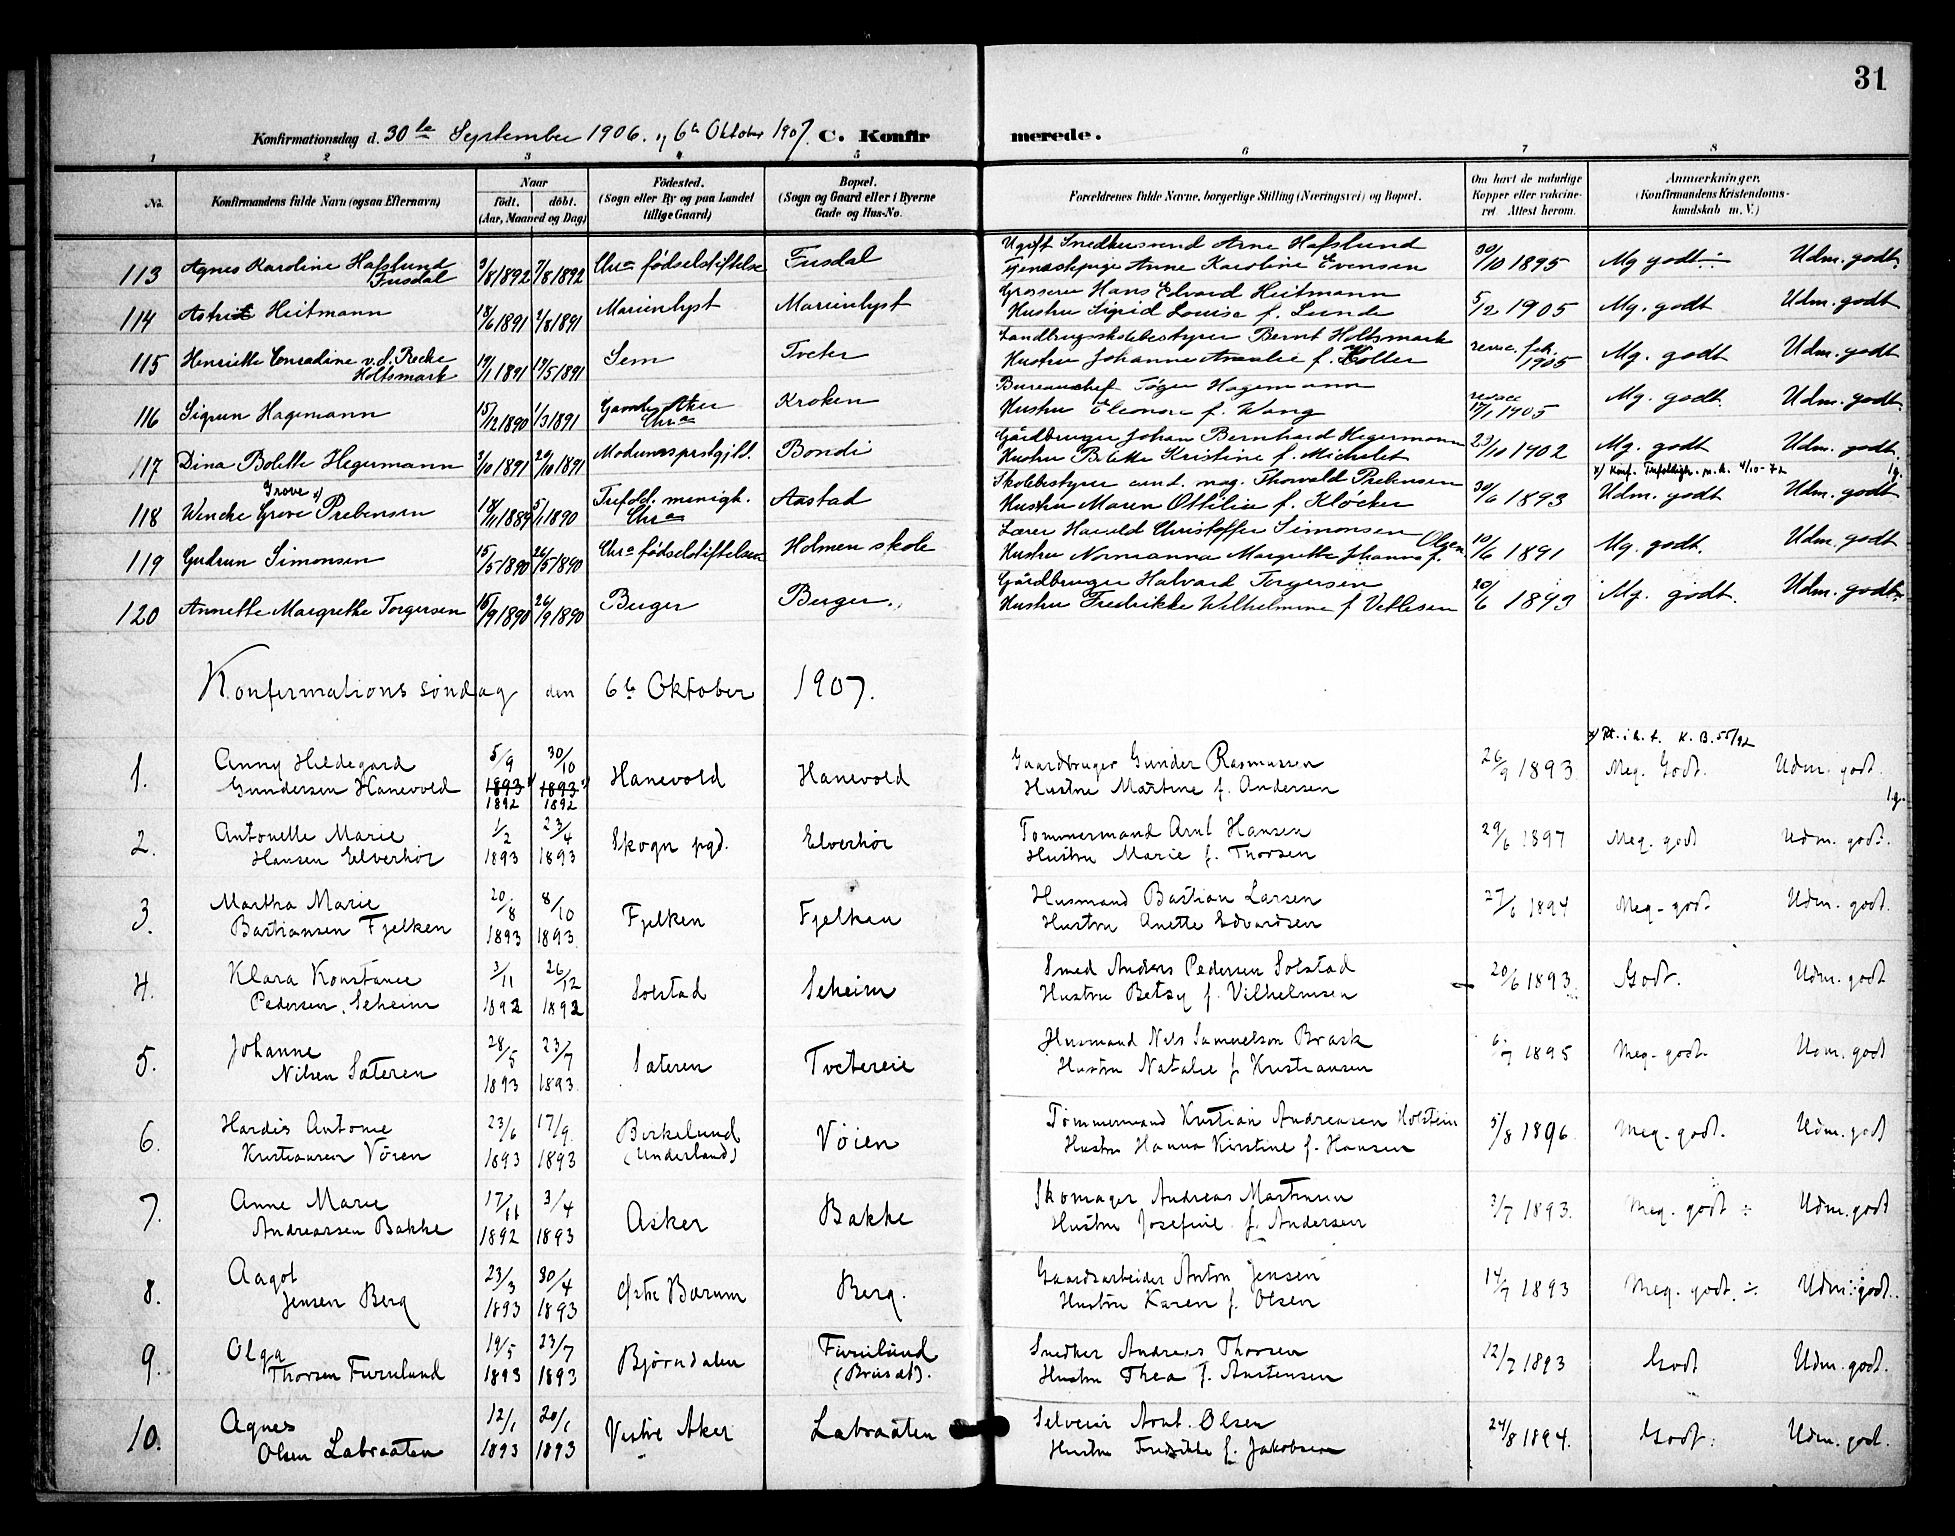 31
Konfirmationsdag d. 30te September 1906. og 6te Oktober 1907. C. Konfir merede.
1 2 3 4 5 6 7 8
No. Konfirmandens fulde Navn (ogsaa Efternavn) Naar født. døbt. (Aar, Maaned og Dag) Fødested. (Sogn eller By og paa Landet tillige Gaard) Bopæl. (Sogn og Gaard eller i Byerne Gade og Hus-No. Forældrenes fulde Navne, borgerlige Stilling (Næringsvei) og Bopæl. Om havt de naturlige Kopper eller vaccineret Attest herom. Anmærkninger. (Konfirmandens Kristendomskundskab m. V.)
113 Agnes Karoline Hafslund Fusdal 3/8 1892 7/8 1892 Chra fødselstiftelse Fusdal Ugift Snedkersvend Arne Hafslund
Tjenestepige Anne Karoline Evensen 30/10 1895 Mg godt ÷ Udm. godt.
114 Astrid Heitmann 18/6 1891 2/8 1891 Marienlyst Marienlyst Grosserer Hans Edvard Heitmann
Hustru Sigrid Louise f. Lunde 5/2 1905 Mg. godt Udm. godt
115 Henriette Conradine v. d. Recke Holtsmark 19/1 1891 17/5 1891 Sem Tveter Landbrugsskolebestyrer Bernt Holtsmark
Hustru Johanne Amalie f. Koller revac. feb. 1905 Mg. godt Udm. godt
116 Sigrun Hagemann 15/12 1890 1/3 1891 Gamle Aker Chra Kroken Bureauchef Tøger Hagemann
Hustru Eleonore f. Wang revacc 17/1 1905 Mg. godt. Udm. godt.
117 Dina Bolette Hegermann 3/10 1891 29/10 1891 Modums prstgjld. Bondi Gårdbruger Johan Bernhard Hegermann
Hustru Bolette Kristine f. Michelet 23/10 1902 Mg. godt Udm. godt
x/ Konf. Trefoldigh. m.k. 4/10-72 1g.
118 Wencke Greve Prebensen Grove x) 18/11 1889 5/1 1890 Trefold. menigh. Chra Aastad Skolebestyrer cand. mag. Thorvald Prebensen
Hustru Maren Ottilia f. Kløcker 30/6 1893 Udm. godt Udm. godt
119 Gudrun Simonsen 15/5 1890 26/5 1890 Chra fødselstiftelsen Holmen skole Lærer Harald Christoffer Simonsen
Hustru Normanna Margrethe Johanna f. Olsen 10/6 1891 Mg. godt. Udm. godt
120 Annette Margrethe Torgersen 15/9 1890 26/9 1890 Berger Berger. Gårdbruger Halvard Torgersen
Hustru Fredrikke Wilhelmine f Vettesen 20/6 1893 Mg. godt. Udm. godt.
Konfirmations søndag den 6te Oktober 1907.
x) Rt. i h. t. K. B. 55/92
1. Anny Hildegard Gundersen Hanevold 5/9 1893 1892 30/10 1893 1892 Hanevold Hanevold Gaardbruger Gunder Rasmussen
Hustru Martine f. Andersen 26/9 1893 Meg. Godt. Udm. godt. 1g.
2. Antonette Marie Hansen Elverhøi 1/2 1893 23/4 1893 Skogn pgd. Elverhøi Tømmermand Arnt Hansen
Hustru Marie f. Thorsen 29/6 1897 Meg. godt Udm. godt.
3. Martha Marie Bastiansen Fjelken 20/8 1893 8/10 1893 Fjelken Fjelken Husmand Bastian Larsen
Hustru Anette Edvardsen 27/6 1894 Meg. godt Udm. godt.
4. Klara Konstance Pedersen Seheim 3/11 1892 26/12 1892 Solstad Seheim Smed Anders Pedersen Solstad
Hustru Betzy f. Vilhelmsen 20/6 1893 Godt. Udm. godt
5. Johanne Nilsen Sæteren 28/5 1893 23/7 1893 Sæteren Tvetereie Husmand Nils Samuelson Brask
Hustru Natalie f Kristiansen 6/7 1895 Meg. godt. Udm. godt
6. Hardis Antonie Kristiansen Vøien 23/6 1893 17/9 1893 Birkelund (Underland) Vøien Tømmermand Kristian Andreasen Holstein
Hustru Hanna Kirstine f. Hansen 5/8 1896 Meg. godt. Udm. godt
7. Anne Marie Andreassen Bakke 17/11 1892 3/4 1893 Asker Bakke Skomager Andreas Martinsen
Hustru Josefine f. Andersen 3/7 1893. Meg. godt ÷ Udm. godt
8. Aagot Jensen Berg 23/3 1893 30/4 1893 Østre Bærum Berg. Gaardsarbeider Anton Jensen
Hustru Karen f. Olsen 14/7 1893 Meg. godt. ÷ Udm. godt.
9. Olga Thorsen Furulund 19/5 1893 23/7 1893 Bjørndalen Furulund (Brusæt). Snedker Andreas Thorsen
Hustru Thea f. Austensen 12/7 1893 Godt Udm. godt.
10. Agnes Olsen Labraaten 12/1 1893 20/1 1893 Vestre Aker Labraaten Selveier Arnt Olsen
Hustru Fredrikke f. Jakobsen 24/8 1894. Godt. Udm. godt.